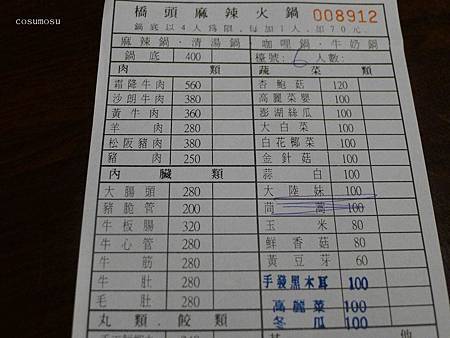 cosumosu
橋頭麻辣火鍋 008912
鍋底以4人為限，每加1人，加70元.
麻辣鍋·清湯鍋 咖哩鍋·牛奶鍋
鍋底 400 檯號: 6 人數:
肉類 蔬菜類
霜降牛肉 560 杏鮑菇 120
沙朗牛肉 380 高麗菜嬰 100
黃牛肉 360 澎湖絲瓜 100
羊肉 280 大白菜 100
松阪豬肉 380 白花椰菜 100
豬肉 250 金針菇 100
內臟類 蒜白 100
大腸頭 280 大陸妹 100
豬脆管 200 茼蒿 100
牛板腸 320 玉米 80
牛心管 280 鮮香菇 80
牛筋 280 黃豆芽 60
牛肚 280 手發黑木耳 100
毛肚 280 高麗菜 100
丸類.餃類 冬瓜 100
其他